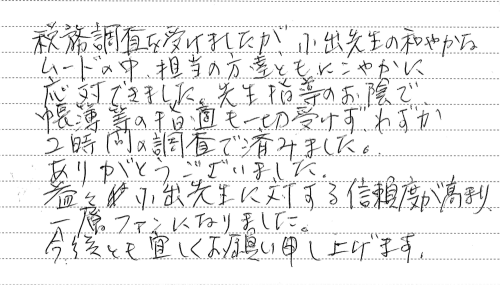 税務調査を受けましたが、小出先生の和やかな
ムードの中、担当の方達ともにこやかに
応対できました。先生指導のお陰で、
帳簿等の指摘も一切受けず、わずか
2時間の調査で済みました。
ありがとうございました。
益々小出先生に対する信頼度が高まり、
一層ファンになりました。
今後とも宜しくお願い申し上げます。